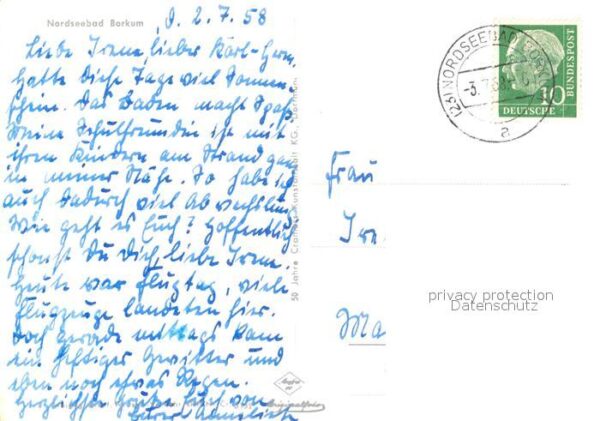 Nordseebad Borkum
d. 2.7.58
Liebe Irene, lieber Karl-Herm,
hatte diese Tage viel Sonnen-
schein. Das Baden macht Spaß.
Meine Schulfreundin ist mit
ihren Kindern am Strand ganz
in meiner Nähe. So habe ich
auch dadurch viel Abwechslung.
Wie geht es Euch? Hoffentlich
schonst Du Dich, liebe Irene.
Heute war Flugtag, viele
Flugzeuge landeten hier.
Doch gerade mittags kam
ein heftiges Gewitter und
eben noch etwas Regen.
Herzlichste Grüße Euch von
Eurer Annelies
50 Jahre Cramers Kunstanstalt KG, Dortmund
Originalfoto
(23) NORDSEEBAD BORKUM
-3.7.58
a
10
DEUTSCHE
BUNDESPOST
Frau
Ire
Ma
privacy protection
Datenschutz